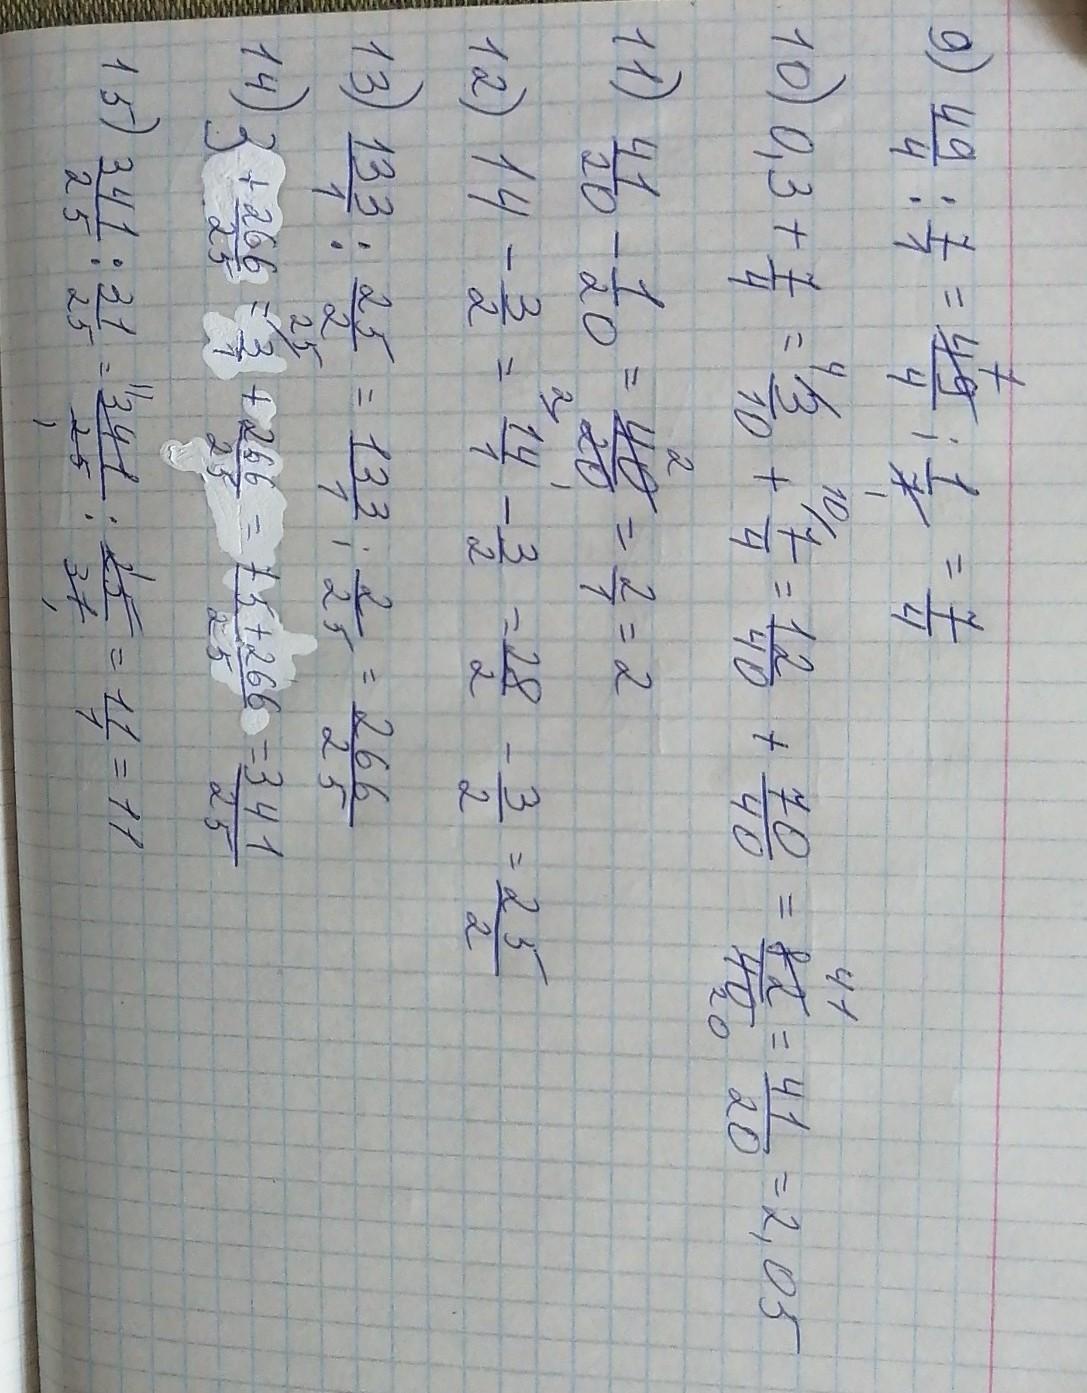 9) 49/4 : 7/1 = 49/4 · 1/7 = 7/4
10) 0,3 + 7/4 = 3/10 + 7/4 = 12/40 + 70/40 = 82/40 = 41/20 = 2,05
11) 41/20 - 1/20 = 40/20 = 2/1 = 2
12) 14 - 3/2 = 14/1 - 3/2 = 28/2 - 3/2 = 25/2
13) 133/1 : 25/2 = 133/1 · 2/25 = 266/25
14) 3 + 266/25 = 3/1 + 266/25 = 75+266/25 = 341/25
15) 341/25 : 31/25 = 341/25 : 25/31 = 11/1 = 11